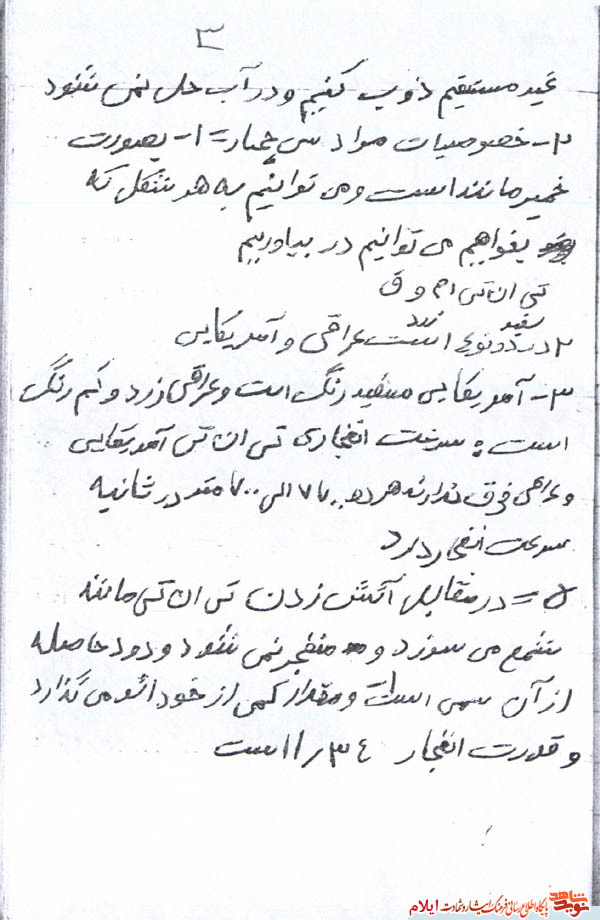 ۳
غیر مستقیم ذوب کنیم و در آب حل نمی شود
۲- خصوصیات مواد سی چهار ۱- بصورت
خمیر مانند است و می توانیم به هر شکل که
بخواهیم می توانیم در بیاوریم
تی ان تی ام و ق
سفید زرد
۲ در دو نوع است عراقی و آمریکایی
۳- آمریکایی سفید رنگ است و عراقی زرد و کم رنگ
است سرعت انفجاری تی ان تی آمریکایی
و عراقی فرق ندارند هر دو ۷۸۰۰ الی ۷۰۰۰ متر در ثانیه
سرعت انفجار دارد
۵ = در مقابل آتش زدن تی ان تی مانند
شمع می سوزد و منفجر نمی شود و دود حاصله
از آن سمی است و مقدار کمی از خود اثر می گذارد
و قدرت انفجار ۱/۳۴ است
نوید شاهد
پایگاه اطلاع رسانی فرهنگ ایثار و شهادت ایلام